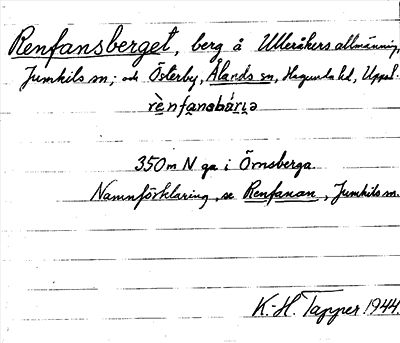 Renfansberget, berg å Ulleråkers allmänning,
Jumkils sn; och Österby, Ålands sn, Hagunda hd, Uppsl.
rènfa̱nsbæ̀riə
350m N ga i Örnsberga.
Namnförklaring, se Renfanan, Jumkils sn.
K.-H. Tapper 1944.